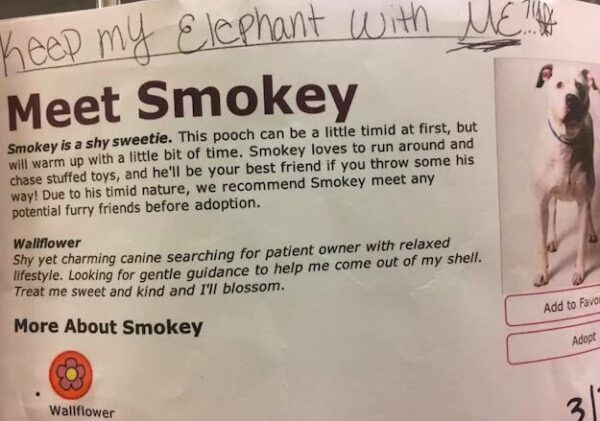 Keep my Elephant with ME...
Meet Smokey
Smokey is a shy sweetie. This pooch can be a little timid at first, but
will warm up with a little bit of time. Smokey loves to run around and
chase stuffed toys, and he'll be your best friend if you throw some his
way! Due to his timid nature, we recommend Smokey meet any
potential furry friends before adoption.
Wallflower
Shy yet charming canine searching for patient owner with relaxed
lifestyle. Looking for gentle guidance to help me come out of my shell.
Treat me sweet and kind and I'll blossom.
Add to Favo
More About Smokey
Adopt
Wallflower
3/